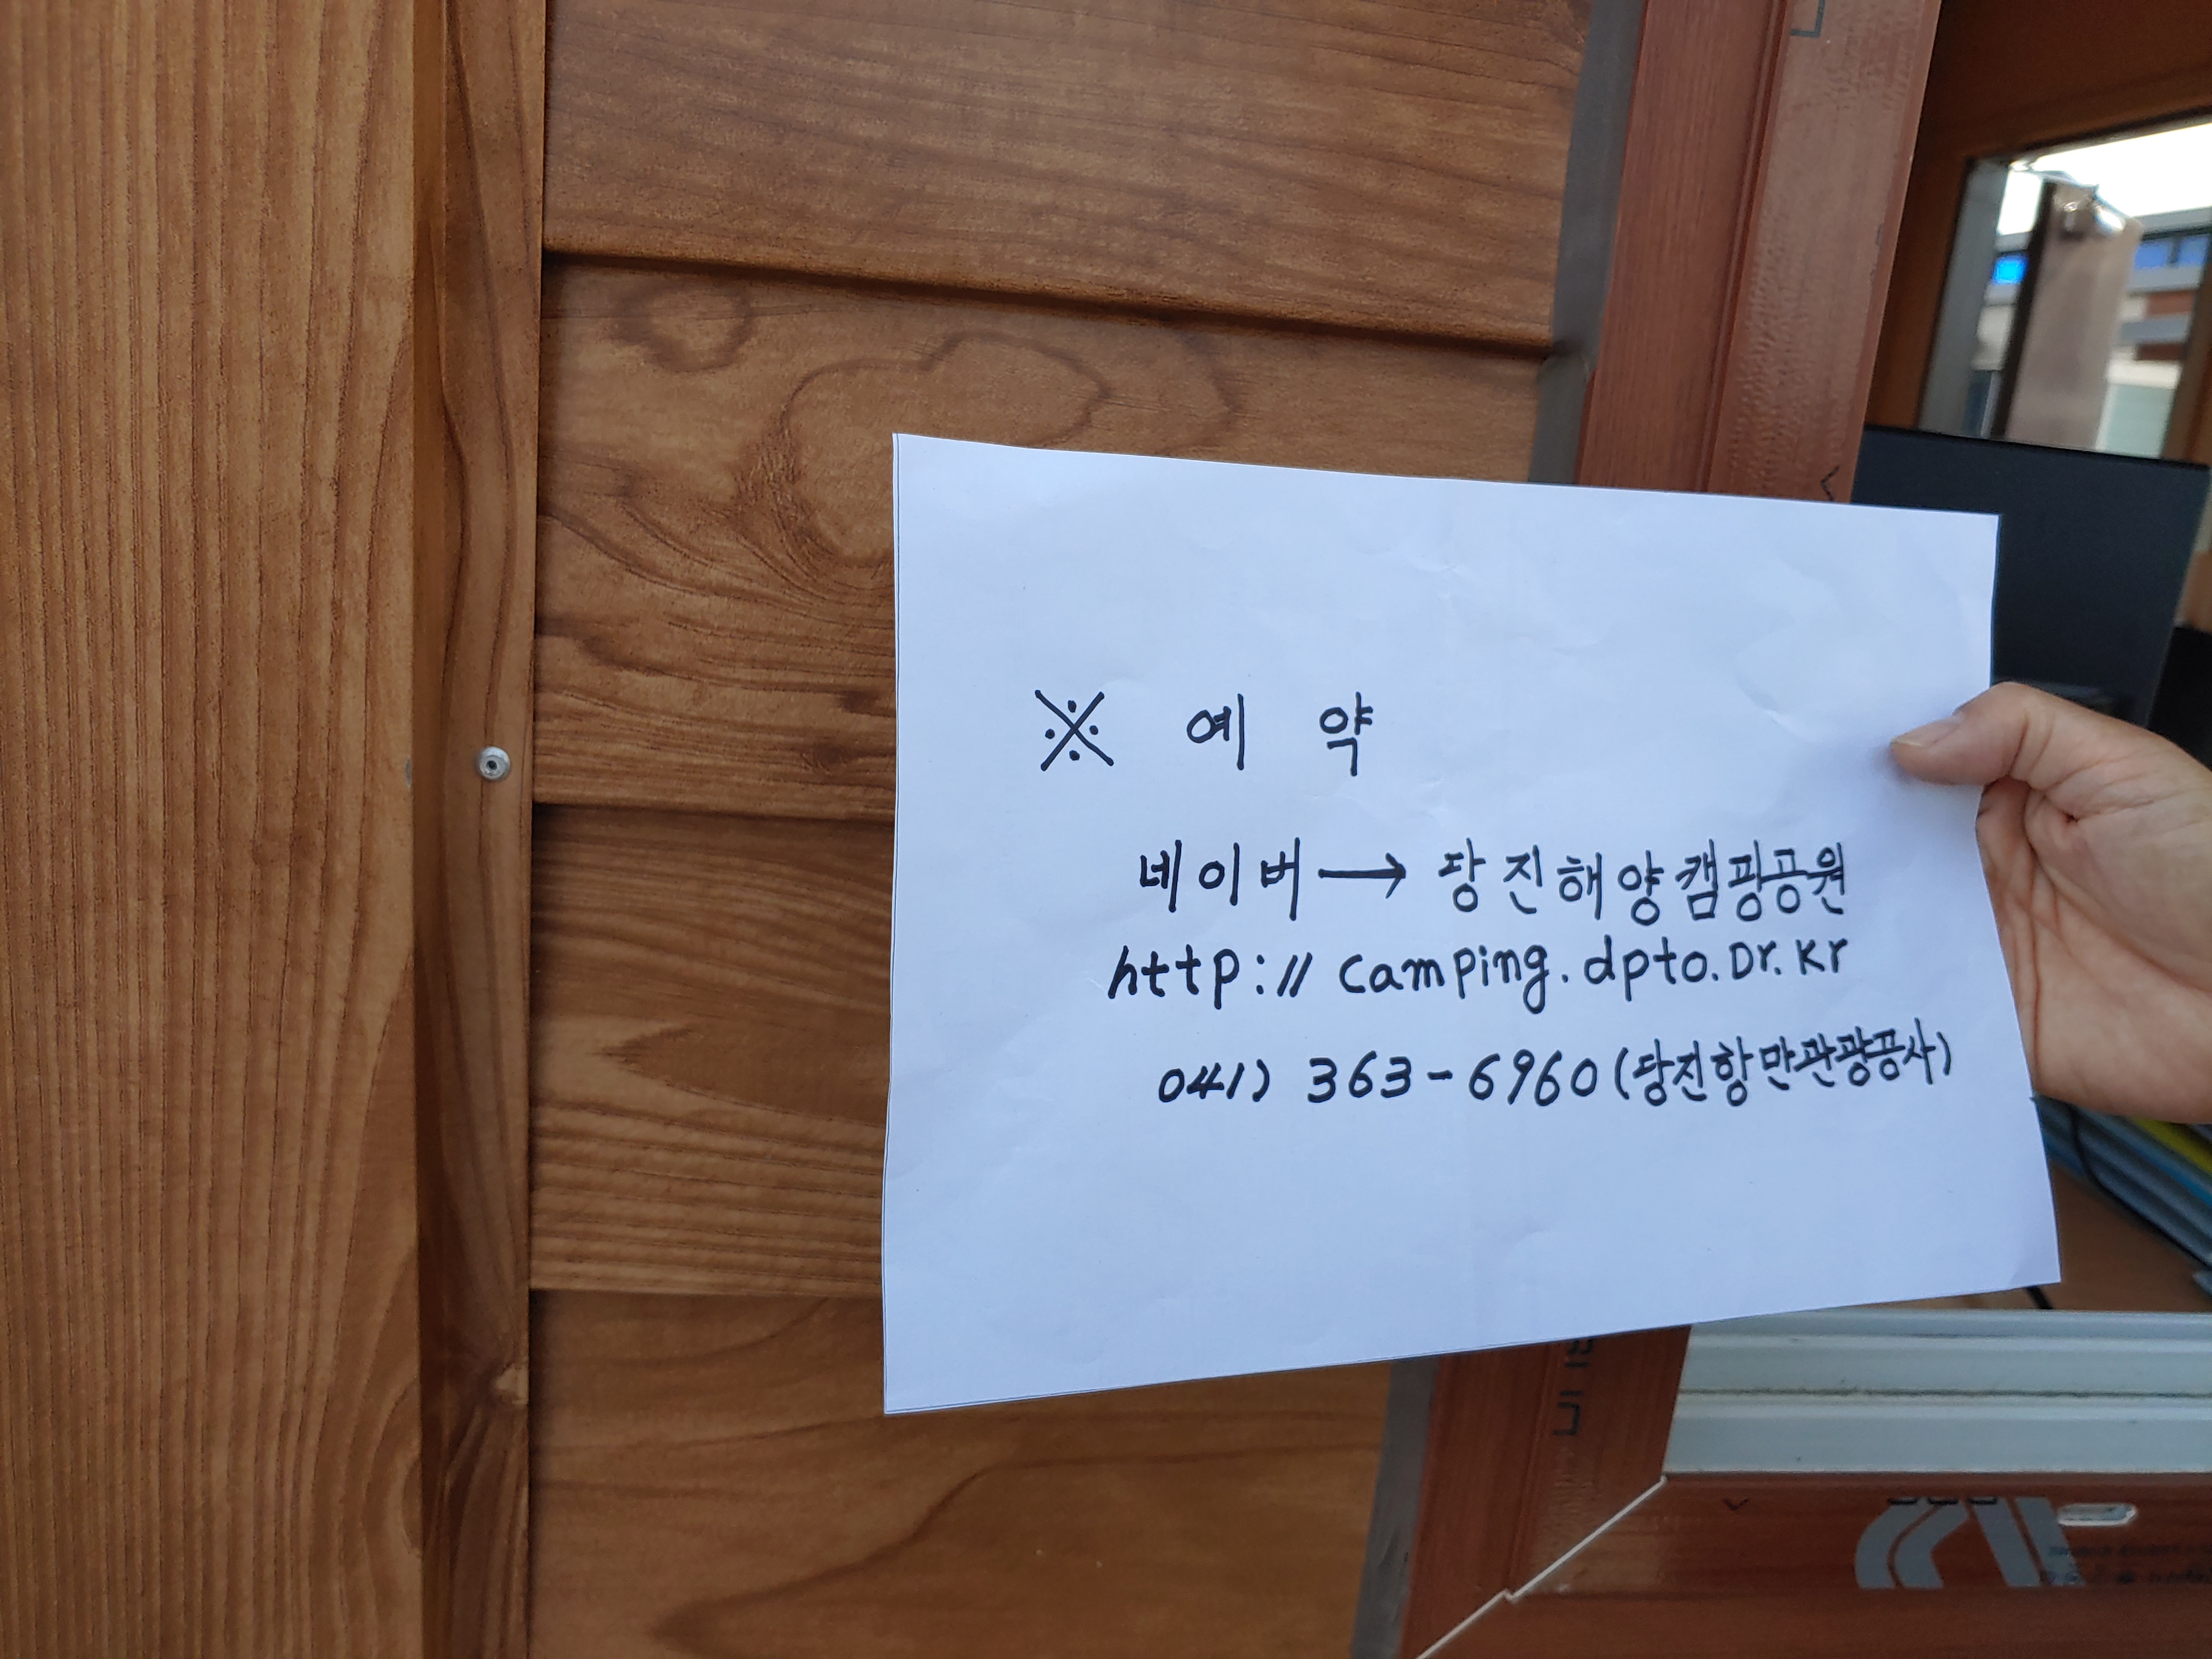 ※ 예약
네이버 → 당진해양캠핑공원
http://camping.dpto.Dr.Kr
041) 363-6960 (당진항만관광공사)